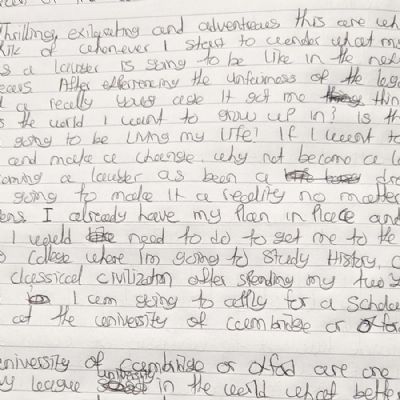 Thrilling, exilarating and adventreous this are wh
like of whenever I start to wonder what my
s a lawyer is going to be like in the ne
ecers. After experiencing the unfairness of the lega
d a really young age it got me thin
s the world I want to grow up in? Is th
going to be living my life! If I want to
and make a change, why not become a la
coming a lawyer as been a dre
going to make it a reality no matter
ens I already have my plan in place and
I would need to do to get me to the
o College where I'm going to study History, C
classical civilization after spending my two y
I am going to apply for a Schola
at the university of Cambridge or Oxfor
university of Cambridge or Oxford are one
vy league university in the world what bette